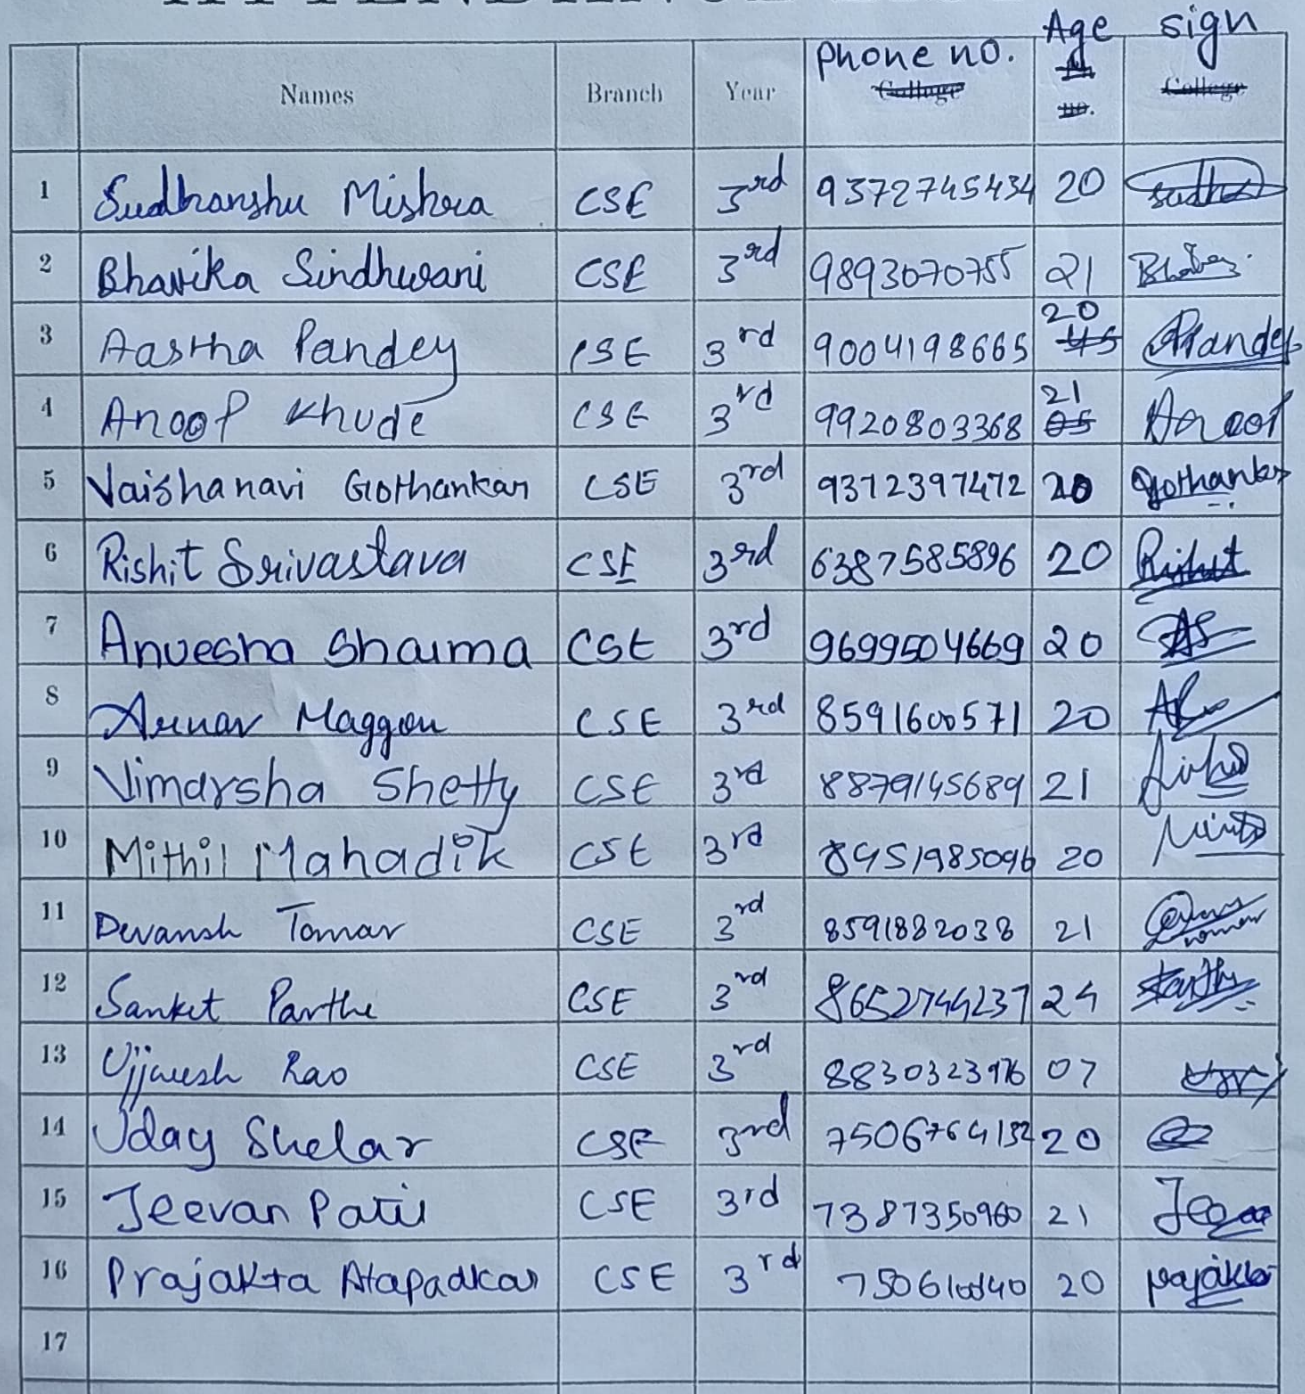 Age sign
Names Branch Year Phone no.
1 Sudhanshu Mishra CSE 3rd 9372745434 20
2 Bhavika Sindhwani CSE 3rd 9893070755 21
3 Aastha Pandey CSE 3rd 9004198665 20 Pandey
4 Anoop Khude CSE 3rd 9920803368 21 Anoop
5 Vaishanavi Gothankar CSE 3rd 9372397472 20 Gothankar
6 Rishit Srivastava CSE 3rd 6387585896 20 Rishit
7 Anvesha Sharma CSE 3rd 9699504669 20 AS
8 Arnav Maggon CSE 3rd 8591600571 20
9 Vimarsha Shetty CSE 3rd 8879145689 21
10 Mithil Mahadik CSE 3rd 8451985096 20
11 Devansh Tomar CSE 3rd 8591882038 21
12 Sanket Parthe CSE 3rd 8652744237 24
13 Ujjwesh Rao CSE 3rd 8830323976 07
14 Uday Shelar CSE 3rd 7506764132 20
15 Jeevan Patil CSE 3rd 7387350960 21
16 Prajakta Atapadkar CSE 3rd 20 Prajakta
17